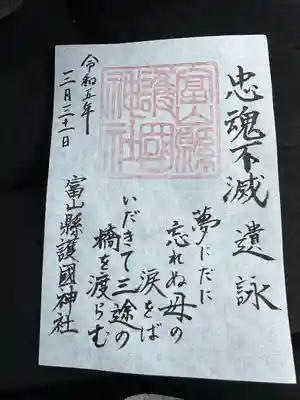 忠魂不滅
遺詠
夢にだに
忘れぬ母の
涙をば
いだきて三途の
橋を渡らむ
富山縣護國神社
富山縣
護國
神社
令和五年
三月三十一日